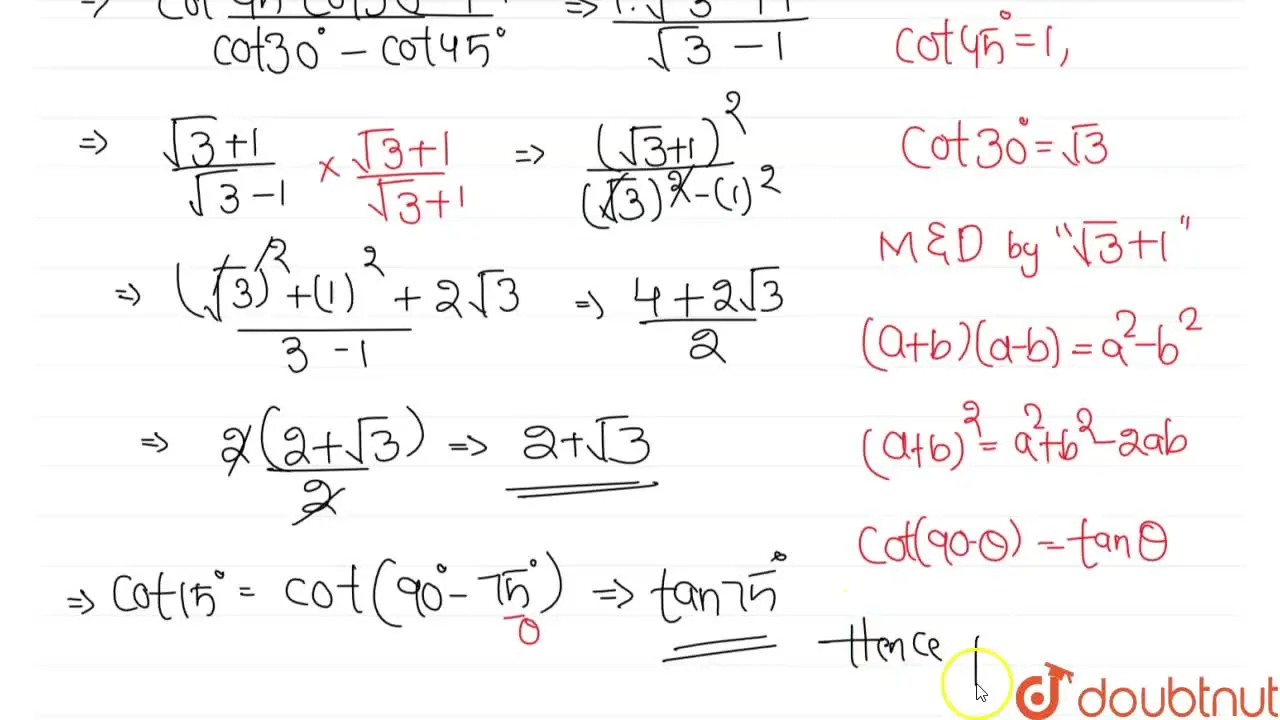 => cot 45° cot 30° + 1 => 1.√3 + 1
cot30° - cot45° √3 - 1
cot45° = 1,
=> √3+1 / √3-1 × √3+1 / √3+1 => (√3+1)² / (√3)² - (1)²
cot30° = √3
M&D by "√3+1"
=> (√3)² + (1)² + 2√3 / 3 - 1 => 4+2√3 / 2
(a+b)(a-b) = a²-b²
=> 2(2+√3) / 2 => 2+√3
(a+b)² = a²+b²-2ab
cot(90-θ) = tanθ
=> cot15° = cot(90° - 75°) => tan75°
θ
Hence
doubtnut